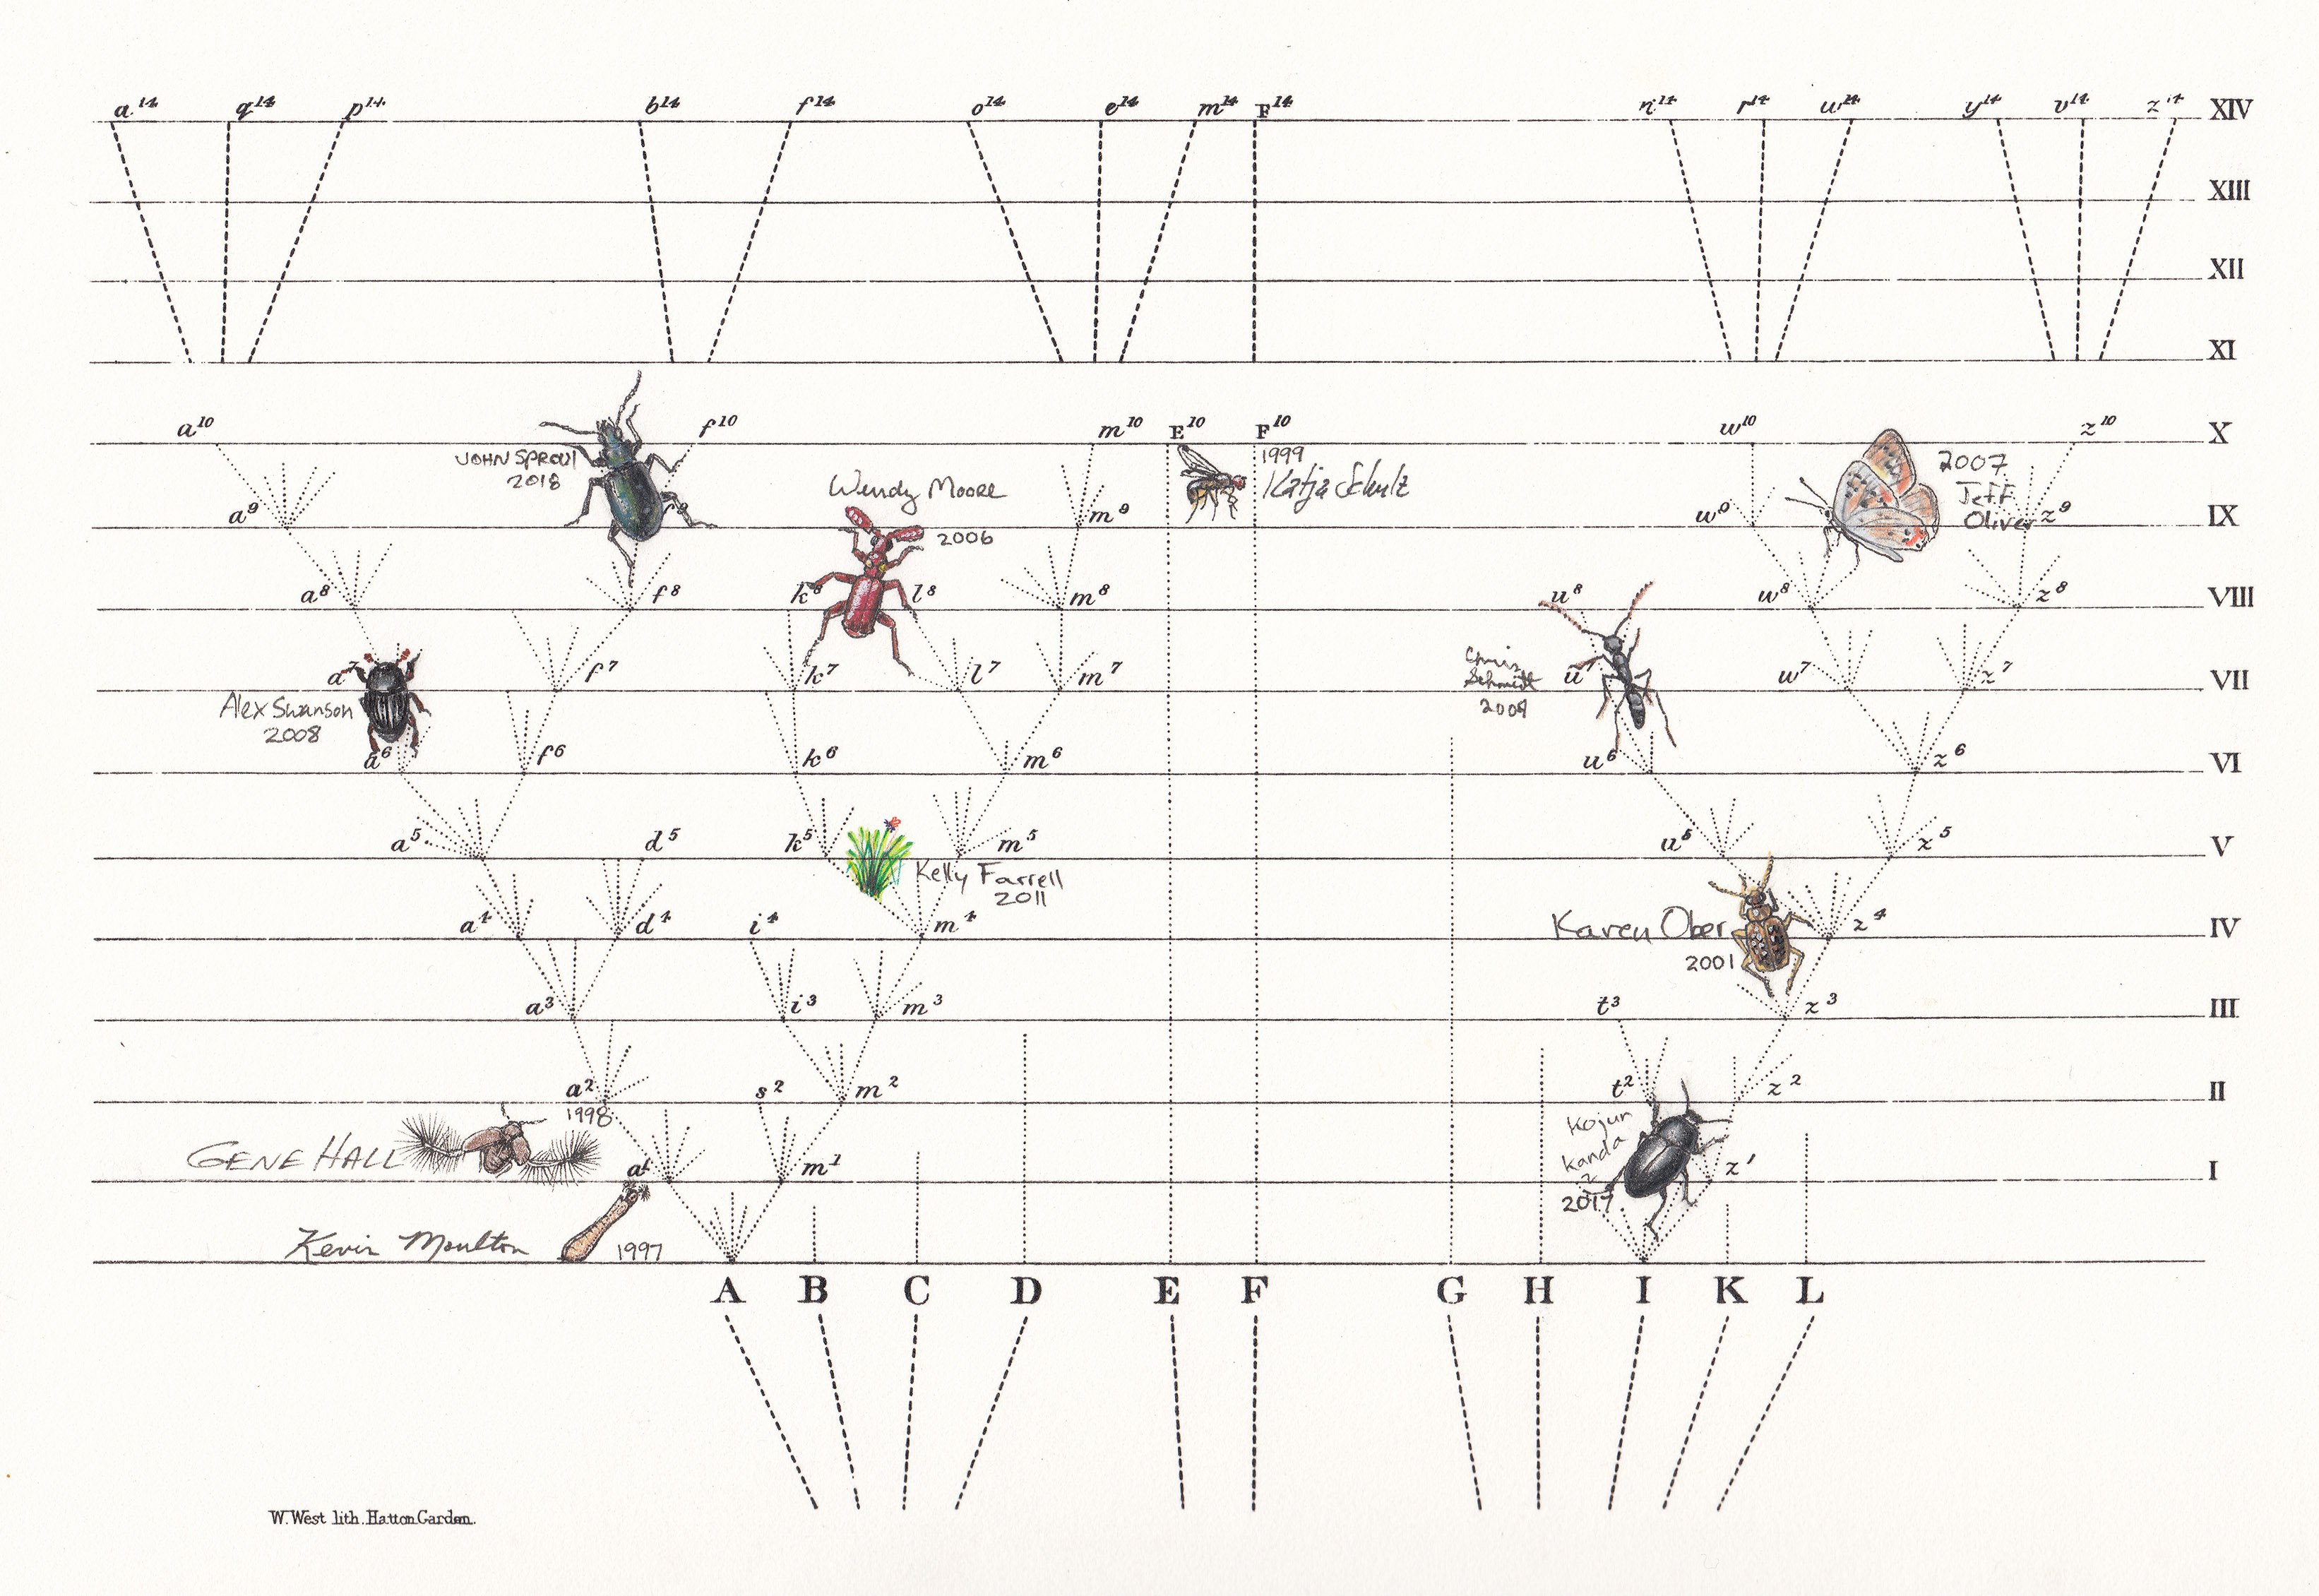 a¹⁴ q¹⁴ p¹⁴ b¹⁴ f¹⁴ o¹⁴ e¹⁴ m¹⁴ F¹⁴ n¹⁴ r¹⁴ w¹⁴ y¹⁴ v¹⁴ z¹⁴ XIV
XIII
XII
XI
a¹⁰ f¹⁰ m¹⁰ E¹⁰ F¹⁰ w¹⁰ z¹⁰ X
JOHN SPROUL
2018
1999
Katja Schulz
2007
Jeff
Oliver
Wendy Moore
2006
a⁹ f⁹ m⁹ w⁹ z⁹ IX
a⁸ f⁸ k⁸ l⁸ m⁸ u⁸ w⁸ z⁸ VIII
a⁷ f⁷ k⁷ l⁷ m⁷ u⁷ w⁷ z⁷ VII
Alex Swanson
2008
Chris
Schmidt
2009
a⁶ f⁶ k⁶ m⁶ u⁶ z⁶ VI
a⁵ d⁵ k⁵ m⁵ u⁵ z⁵ V
Kelly Farrell
2011
a⁴ d⁴ i⁴ m⁴ z⁴ IV
Karen Ober
2001
a³ i³ m³ t³ z³ III
a² s² m² t² z² II
1998
GENE HALL
Kojun
Kanda
2017
a¹ m¹ z¹ I
Kevin Moulton
1997
A B C D E F G H I K L
W. West lith. Hatton Garden.